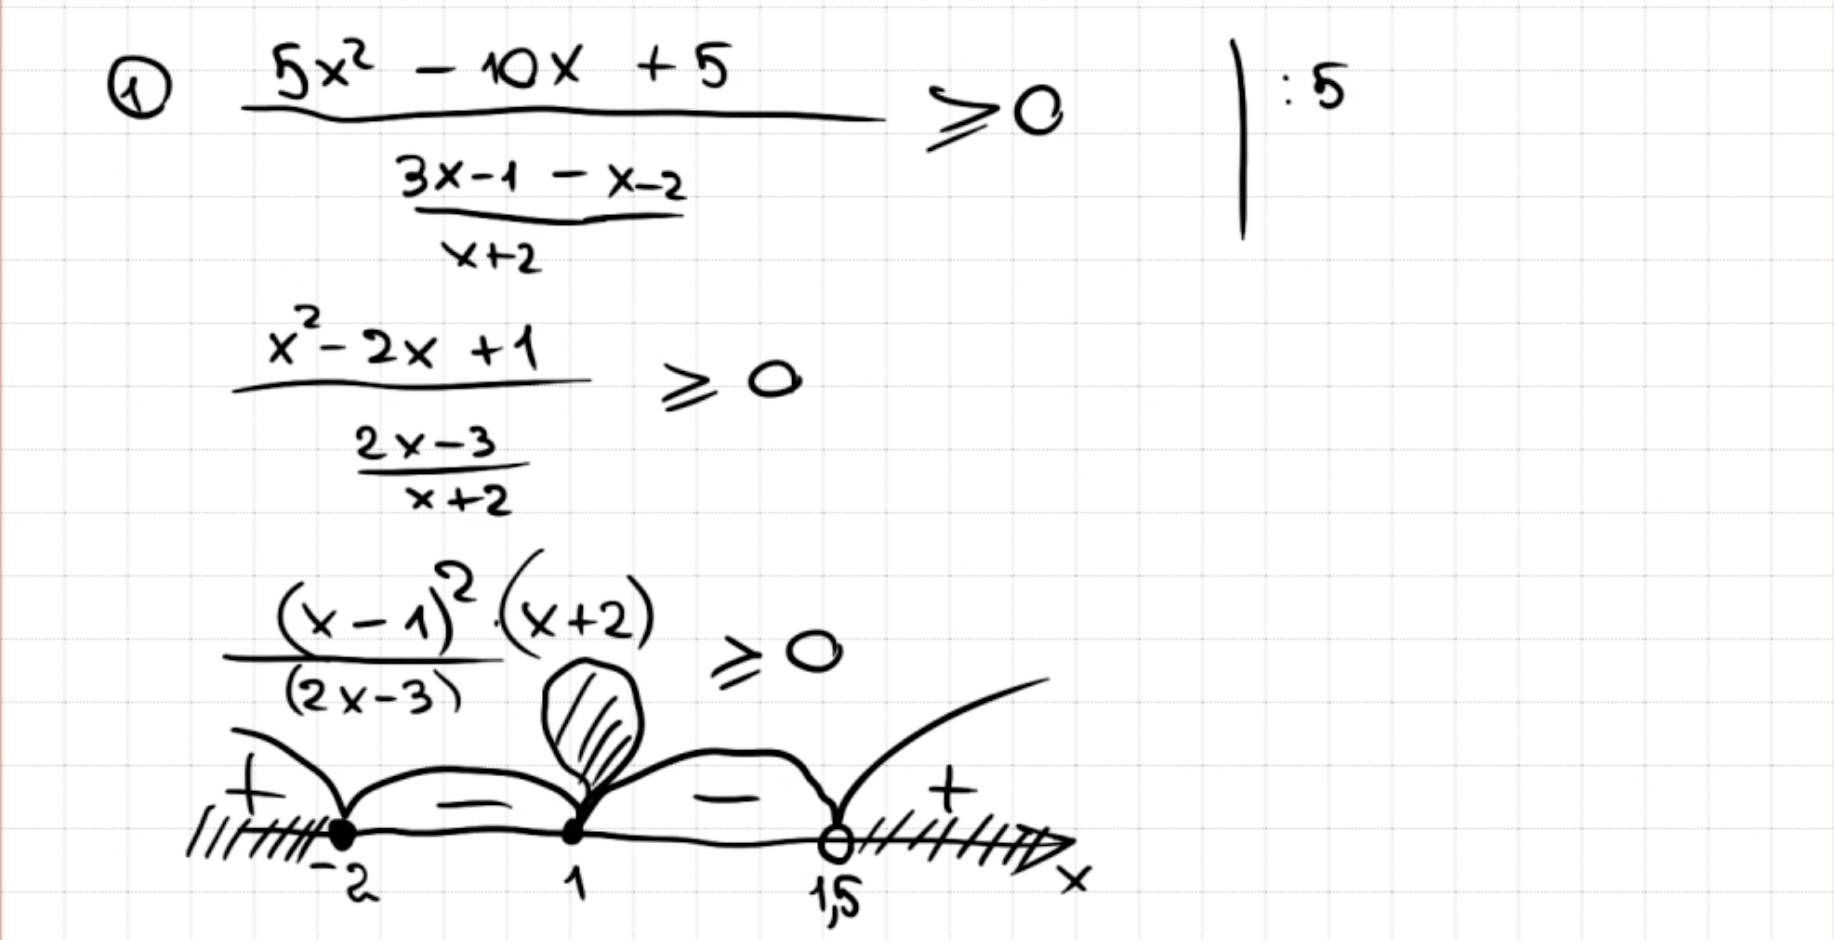 ① 5x² - 10x + 5 ⩾ 0 | : 5
3x-1 - x-2
x+2
x² - 2x + 1 ⩾ 0
2x-3
x+2
(x-1)² · (x+2) ⩾ 0
(2x-3)
+ - - +
-2 1 1,5 x